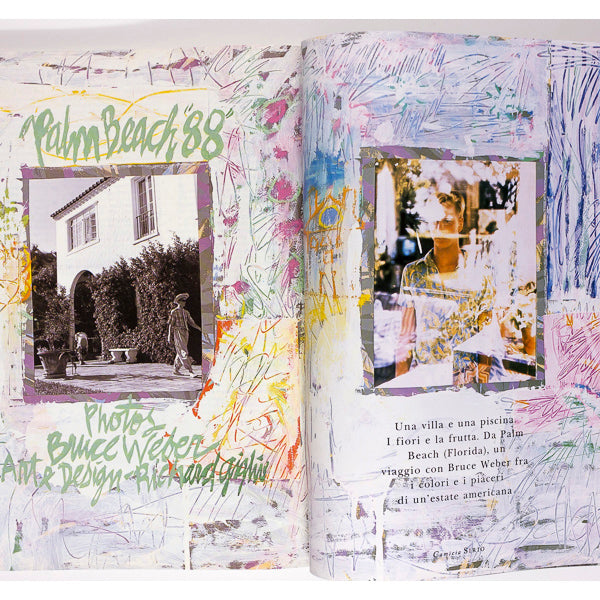 "Palm Beach "88"
Photos
Bruce Weber
Art & Design - Richard Giglio
Una villa e una piscina.
I fiori e la frutta. Da Palm
Beach (Florida), un
viaggio con Bruce Weber fra
i colori e i piaceri
di un'estate americana
Camicie SIRIO